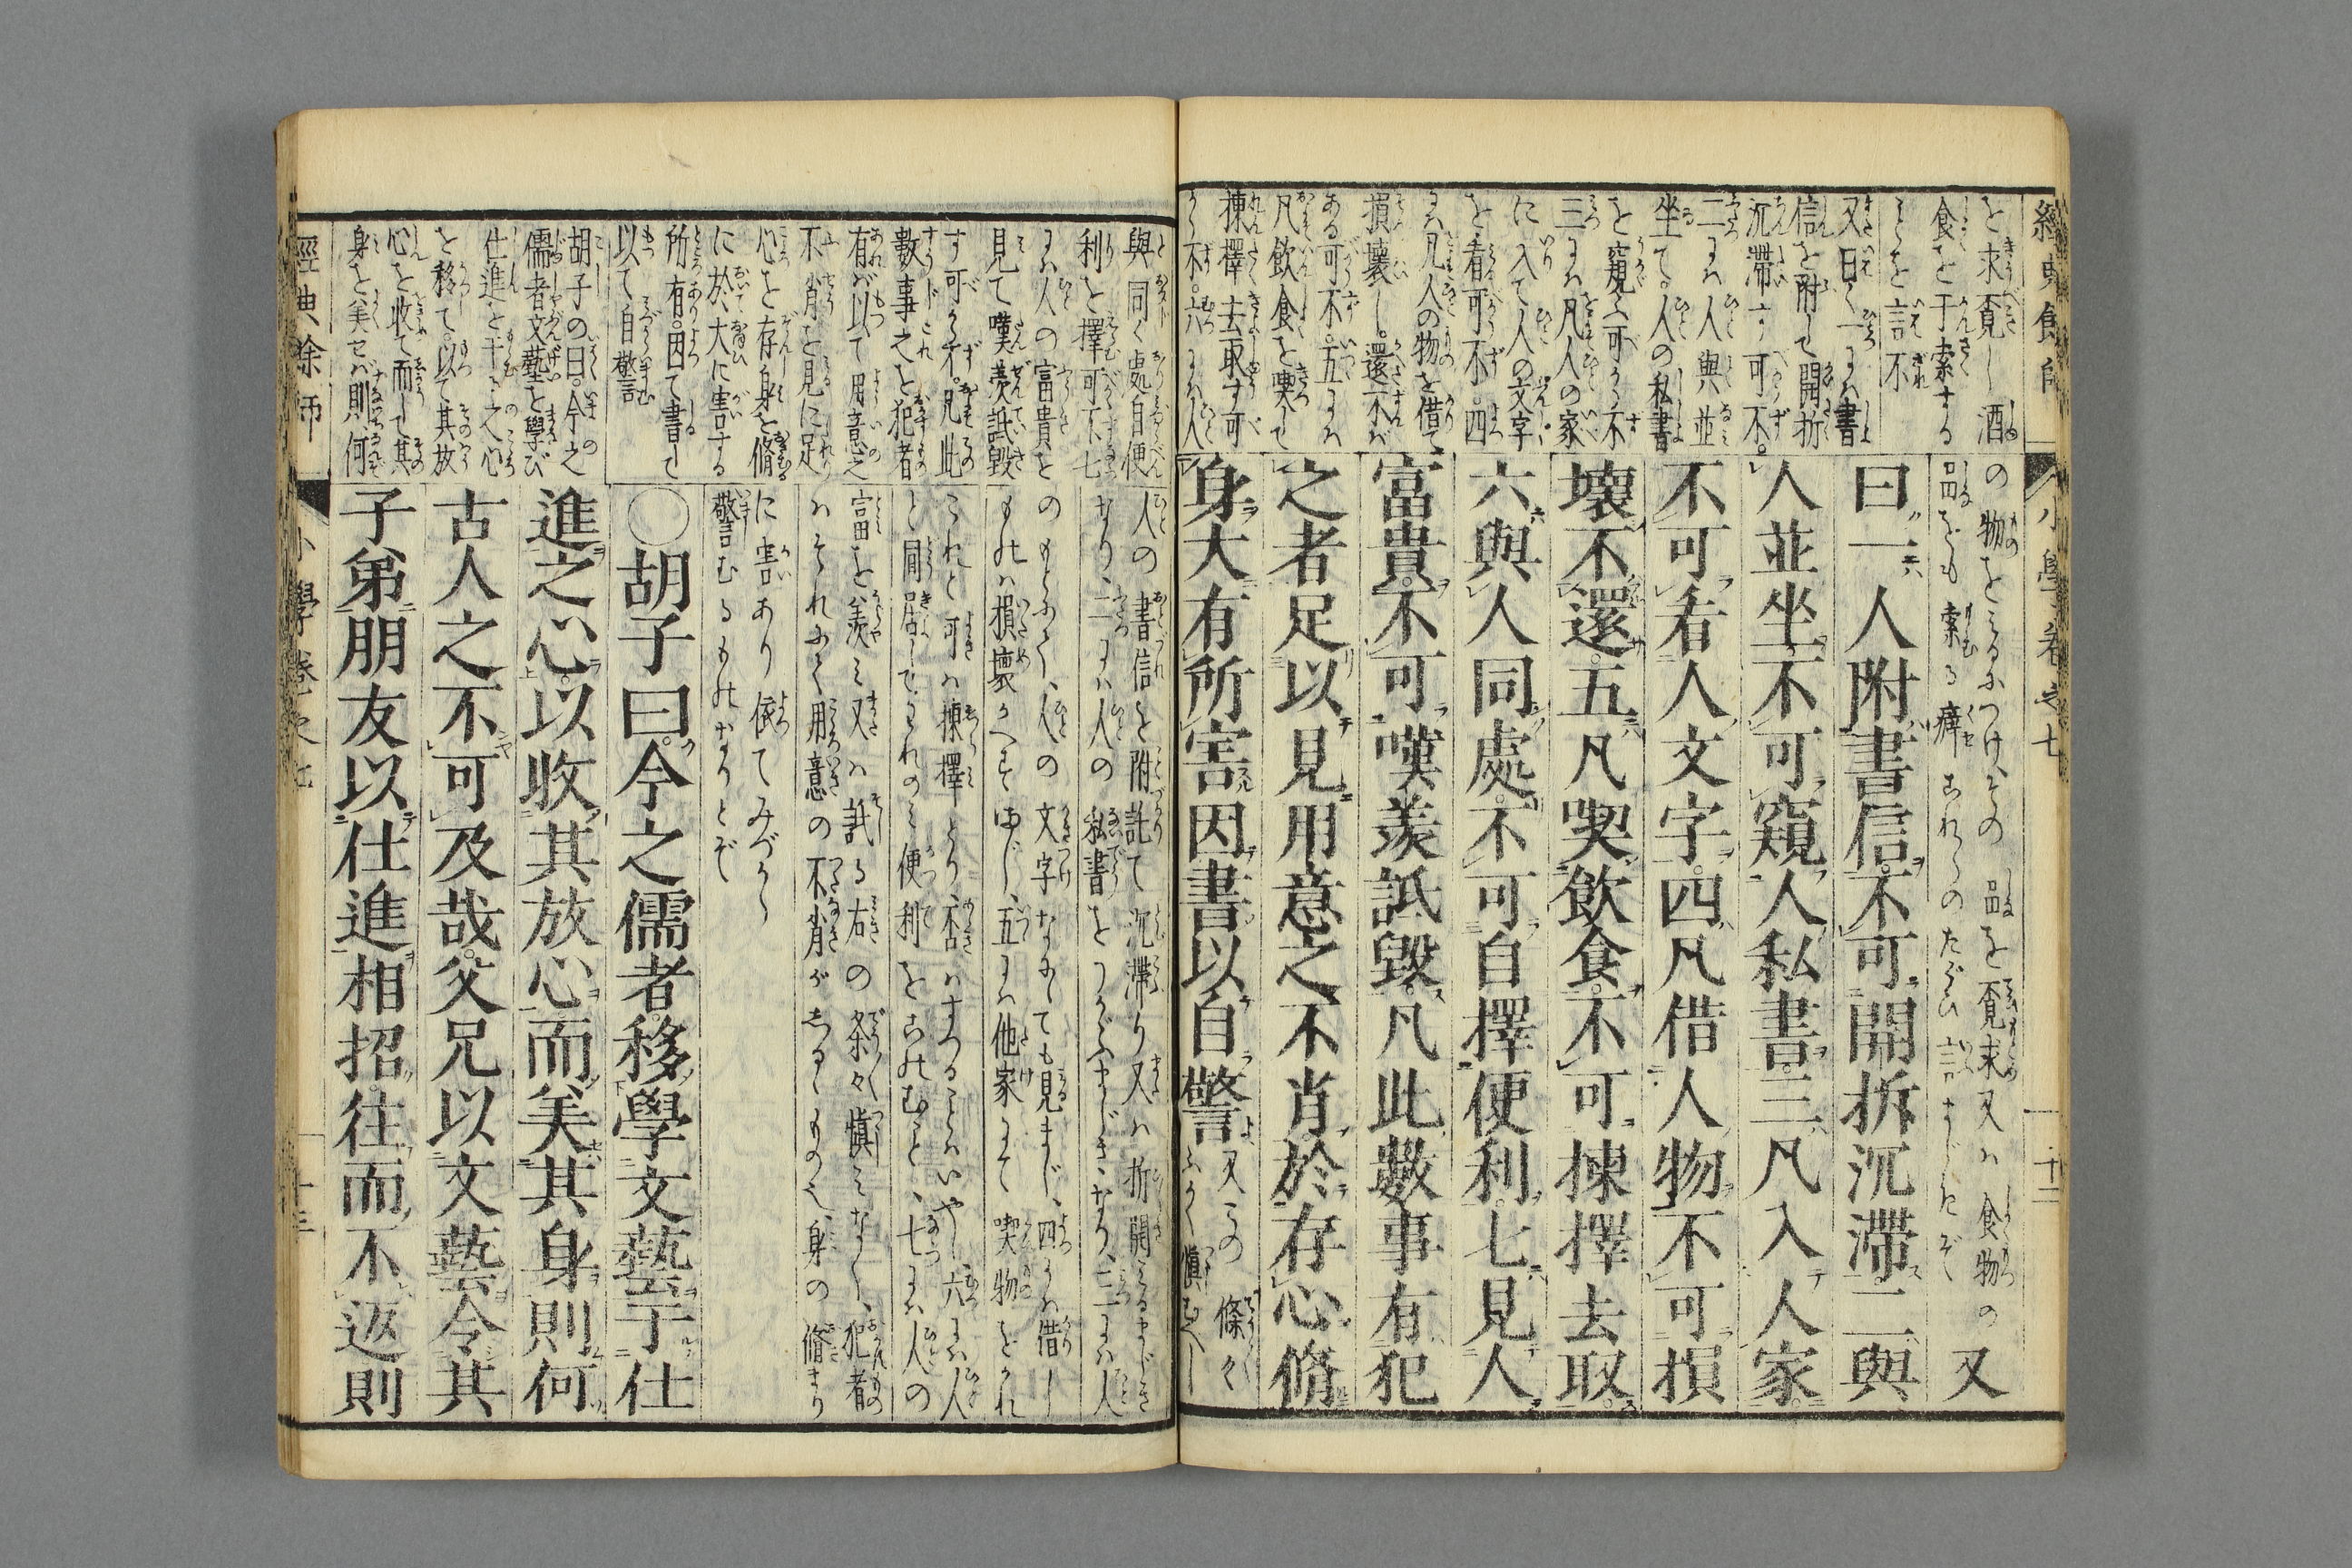 經典餘師
小學卷之七
十二
を求覓し酒
食を于索する
ことを言不
又曰く一には書
信を附して開拆
沉滯す可不。
二には人與並
坐て。人の私書
を窺ふ可から不
三には凡人の家
に入て人の文字
を看可不。四
には凡人の物を借て
損壞し。還不ば
ある可不。五には
凡飲食を喫して
揀擇去取す可
から不。六には人
の物をみるにつけ、その品を覓求又ハ食物の
品をも索る癖これらのたぐひ言まじきぞ
又
曰一人附書信不可開拆沉滯二與
人並坐不可窺人私書三凡入人家
不可看人文字四凡借人物不可損
壞不還五凡喫飲食不可揀擇去取
六與人同處不可自擇便利七見人
富貴不可嘆羨詆毀凡此數事有犯
之者足以見用意之不肖於存心脩
身大有所害因書以自警
又この條々
ふかく愼むべし
與同く處自便
利を擇可不、七
には人の富貴を
見て嘆羨詆毀
す可から不。凡此
數事之を犯者
有ば以て用意之
不肖を見に足
心を存身を脩る
に於、大に害する
所有。因て書して
以て自警
人の書信を附託て沉滯り又ハ拆開みるまじき
なり、二には人の私書をうかゞふまじきなり、三には人
のもとにて、人の文字なにても見まじ、四には借し
ものハ損壞かへさずまじ、五には他家にて喫物をかれ
これと可ハ揀擇とり、否ハすつることハいやし六には人
と同居してわれのミ便利をこのむこと、七には人の
富を羨ミ又ハ詆る右の条々愼ミなく、犯者
ハそれにて用意の不肖がしるゝもの也、身の脩まり
に害あり依てみづから
警むるものなりとぞ
○胡子曰今之儒者移學文藝于仕
進之心以收其放心而美其身則何
古人之不可及哉父兄以文藝令其
子弟朋友以仕進相招往而不返則
胡子の曰。今之
儒者文藝を學び
仕進を干る之心
を移て。以て其放
心を收て而して其
身を美せバ則何
經典餘師
小學卷之七
十三